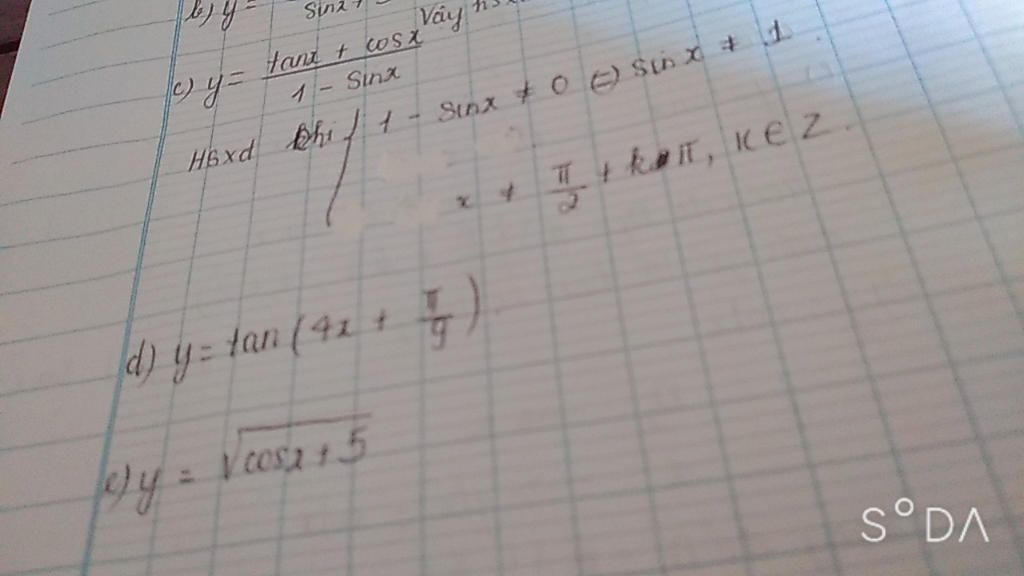 b) y =
sinx +
Vậy
c) y = \frac{tanx + cosx}{1 - sinx}
HSxd khi { 1 - sinx ≠ 0 (=) sinx ≠ 1.
x ≠ \frac{π}{2} + kπ, K ∈ Z.
d) y = tan(4x + \frac{π}{9})
e) y = \sqrt{cosx + 5}
S°DΛ